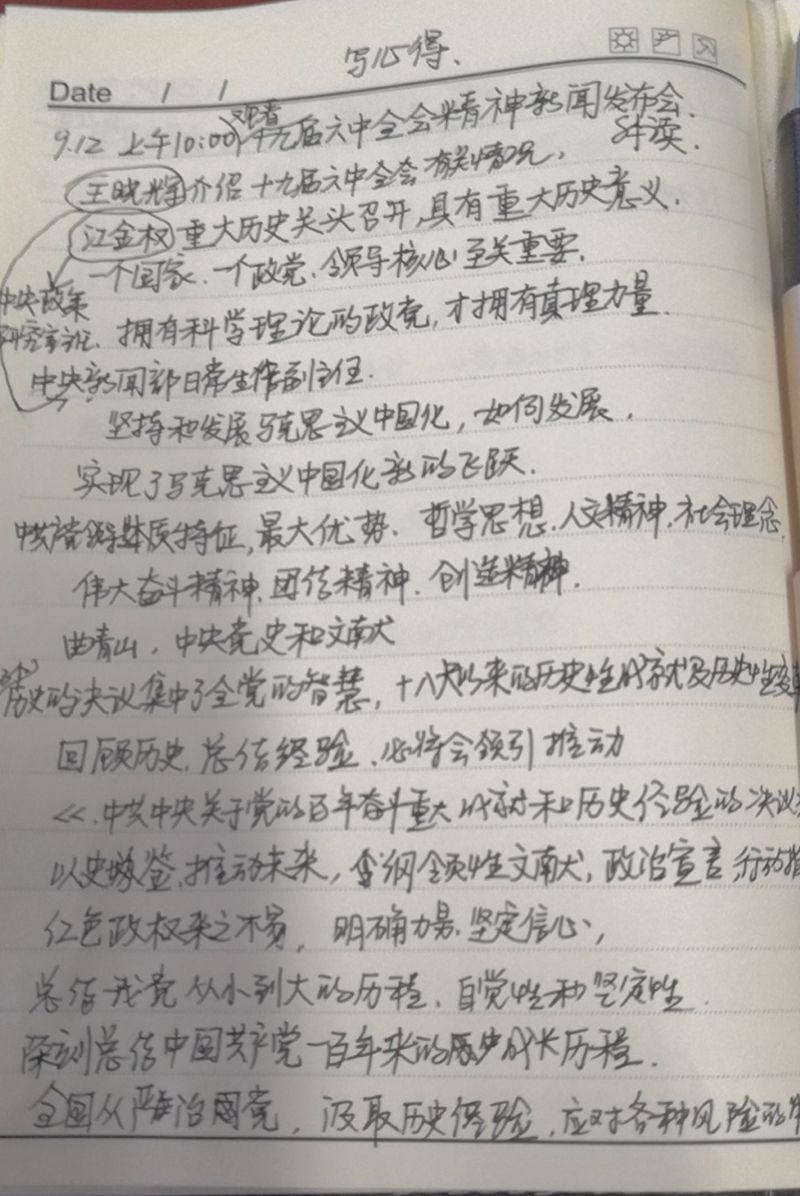 写心得、
Date / /
9.12 上午10:00 观看十九届六中全会精神新闻发布会.
解读.
王晓辉介绍十九届六中全会有关情况,
江金权 重大历史关头召开,具有重大历史意义.
一个国家、一个政党,领导核心至关重要.
中央政策
研究室主任. 拥有科学理论的政党,才拥有真理力量.
中央新闻部日常工作副主任.
坚持和发展马克思主义中国化,如何发展.
实现了马克思主义中国化新的飞跃.
特征,最大优势. 哲学思想.人文精神.社会理念.
伟大奋斗精神.团结精神.创造精神.
曲青山,中央党史和文献
历史的决议集中了全党的智慧,十八大以来的历史性成就及历史性变革
回顾历史,总结经验,必将会领引推动
<<中共中央关于党的百年奋斗重大成就和历史经验的决议
以史为鉴,推动未来,纲领性文献,政治宣言 行动指
红色政权来之不易,明确力易.坚定信心,
总结我党从小到大的历程,自觉性和坚定性.
深刻总结中国共产党一百年来的历史成长历程.
全国从严治国党,汲取历史经验,应对各种风险的